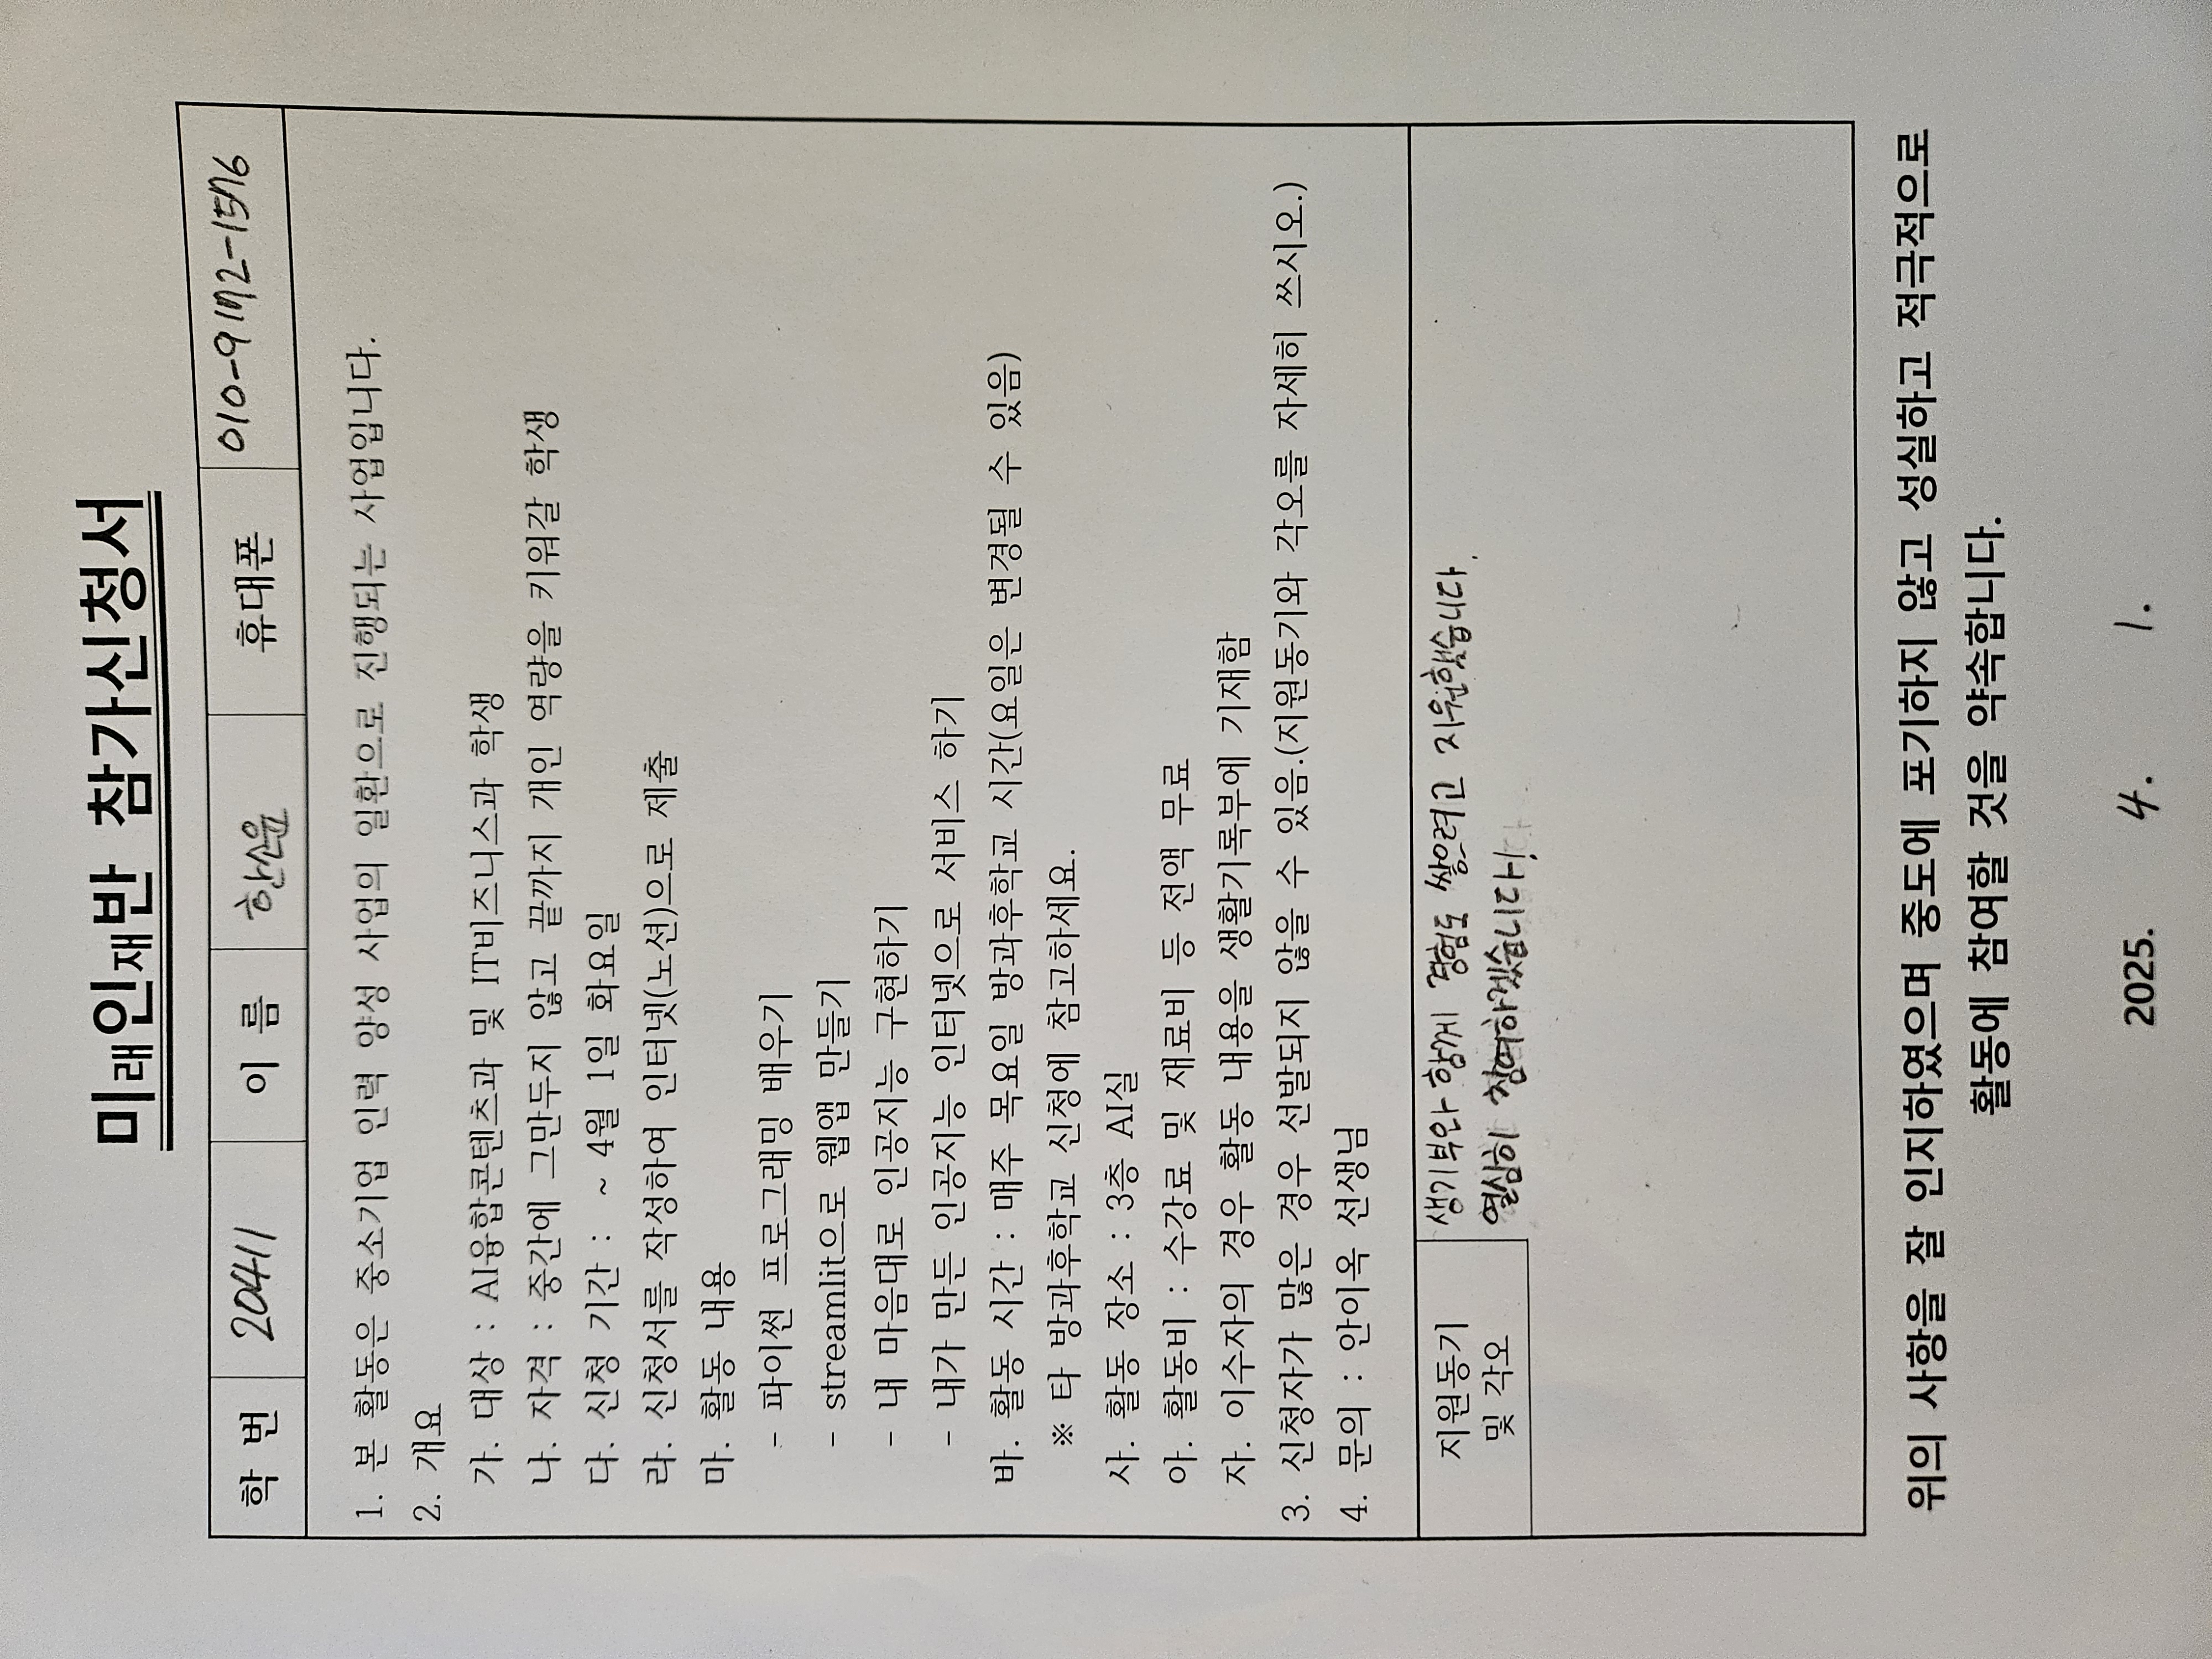 미래인재반 참가신청서
학 번 20411 이 름 한소윤 휴대폰 010-9172-1576
1. 본 활동은 중소기업 인력 양성 사업의 일환으로 진행되는 사업입니다.
2. 개요
가. 대상 : AI융합콘텐츠과 및 IT비즈니스과 학생
나. 자격 : 중간에 그만두지 않고 끝까지 개인 역량을 키워갈 학생
다. 신청 기간 : ~ 4월 1일 화요일
라. 신청서를 작성하여 인터넷(노션)으로 제출
마. 활동 내용
- 파이썬 프로그래밍 배우기
- streamlit으로 웹앱 만들기
- 내 마음대로 인공지능 구현하기
- 내가 만든 인공지능 인터넷으로 서비스 하기
바. 활동 시간 : 매주 목요일 방과후학교 시간(요일은 변경될 수 있음)
※ 타 방과후학교 신청에 참고하세요.
사. 활동 장소 : 3층 AI실
아. 활동비 : 수강료 및 재료비 등 전액 무료
자. 이수자의 경우 활동 내용을 생활기록부에 기재함
3. 신청자가 많은 경우 선발되지 않을 수 있음.(지원동기와 각오를 자세히 쓰시오.)
4. 문의 : 안이옥 선생님
지원동기 생기부와 함께 경험도 쌓으려고 지원했습니다.
및 각오 열심히 참여하겠습니다!
위의 사항을 잘 인지하였으며 중도에 포기하지 않고 성실하고 적극적으로
활동에 참여할 것을 약속합니다.
2025. 4. 1.